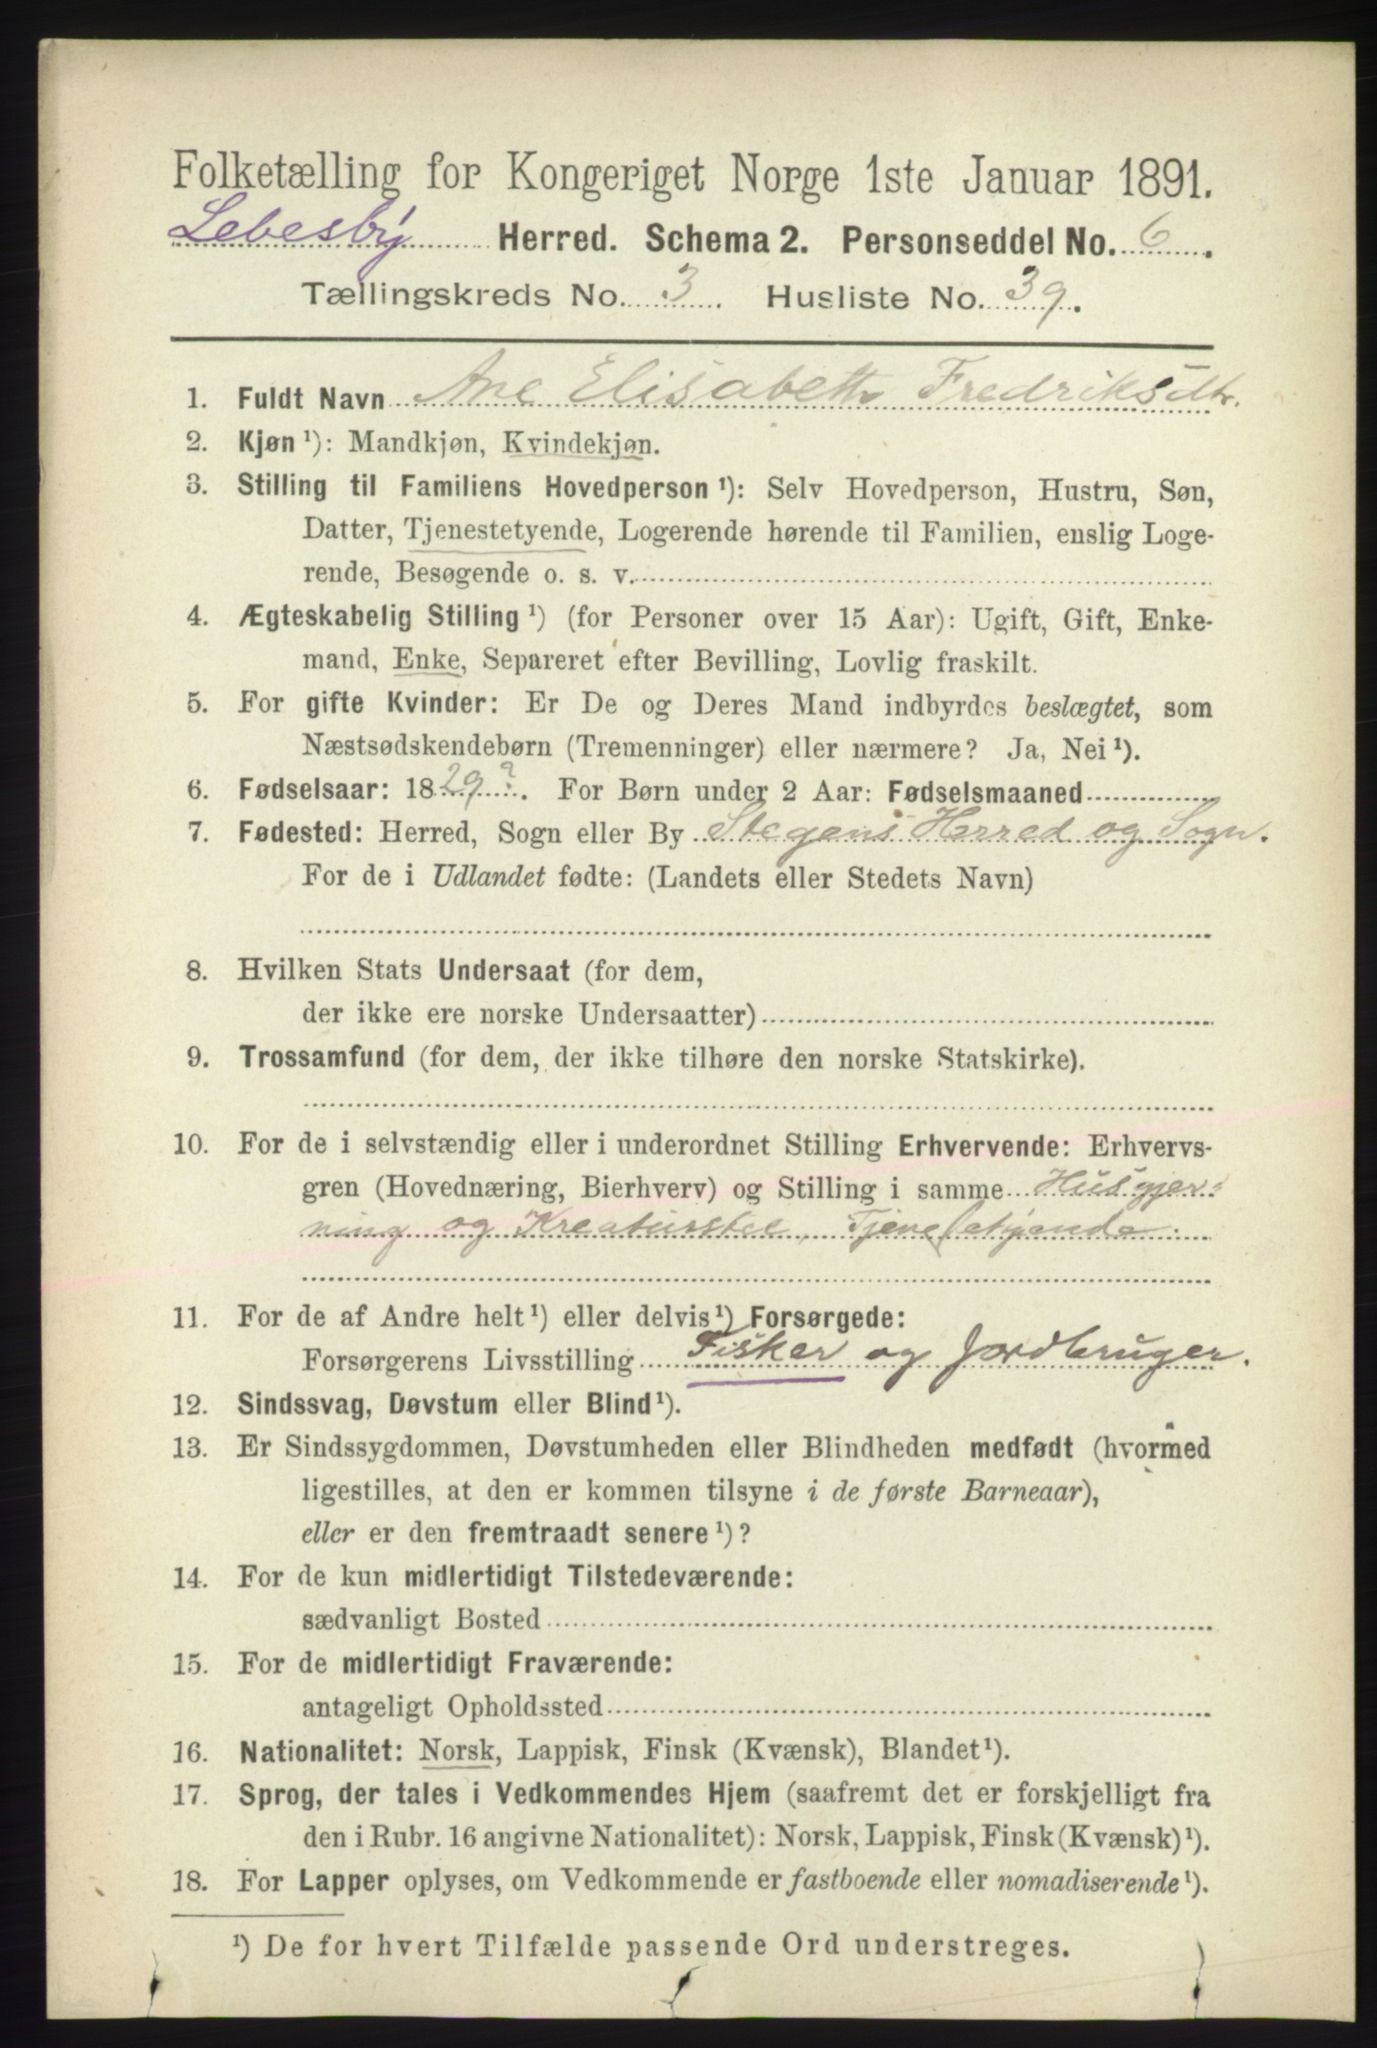 Folketælling for Kongeriget Norge 1ste Januar 1891.
Lebesby Herred. Schema 2. Personseddel No. 6.
Tællingskreds No. 3. Husliste No. 39.
1. Fuldt Navn Ane Elisabeth Fredriksdtr.
2. Kjøn ¹): Mandkjøn, Kvindekjøn.
3. Stilling til Familiens Hovedperson ¹): Selv Hovedperson, Hustru, Søn,
Datter, Tjenestetyende, Logerende hørende til Familien, enslig Loge-
rende, Besøgende o. s. v.
4. Ægteskabelig Stilling ¹) (for Personer over 15 Aar): Ugift, Gift, Enke-
mand, Enke, Separeret efter Bevilling, Lovlig fraskilt.
5. For gifte Kvinder: Er De og Deres Mand indbyrdes beslægtet, som
Næstsødskendebørn (Tremenninger) eller nærmere? Ja, Nei ¹).
6. Fødselsaar: 1829?. For Børn under 2 Aar: Fødselsmaaned
7. Fødested: Herred, Sogn eller By Stegens Herred og Sogn.
For de i Udlandet fødte: (Landets eller Stedets Navn)
8. Hvilken Stats Undersaat (for dem,
der ikke ere norske Undersaatter)
9. Trossamfund (for dem, der ikke tilhøre den norske Statskirke).
10. For de i selvstændig eller i underordnet Stilling Erhvervende: Erhvervs-
gren (Hovednæring, Bierhverv) og Stilling i samme Husgjer-
ning og Kreaturstel, Tjenestetyende.
11. For de af Andre helt ¹) eller delvis ¹) Forsørgede:
Forsørgerens Livsstilling Fisker og Jordbruger.
12. Sindssvag, Døvstum eller Blind ¹).
13. Er Sindssygdommen, Døvstumheden eller Blindheden medfødt (hvormed
ligestilles, at den er kommen tilsyne i de første Barneaar),
eller er den fremtraadt senere ¹)?
14. For de kun midlertidigt Tilstedeværende:
sædvanligt Bosted
15. For de midlertidigt Fraværende:
antageligt Opholdssted
16. Nationalitet: Norsk, Lappisk, Finsk (Kvænsk), Blandet ¹).
17. Sprog, der tales i Vedkommendes Hjem (saafremt det er forskjelligt fra
den i Rubr. 16 angivne Nationalitet): Norsk, Lappisk, Finsk (Kvænsk) ¹).
18. For Lapper oplyses, om Vedkommende er fastboende eller nomadiserende ¹).
¹) De for hvert Tilfælde passende Ord understreges.